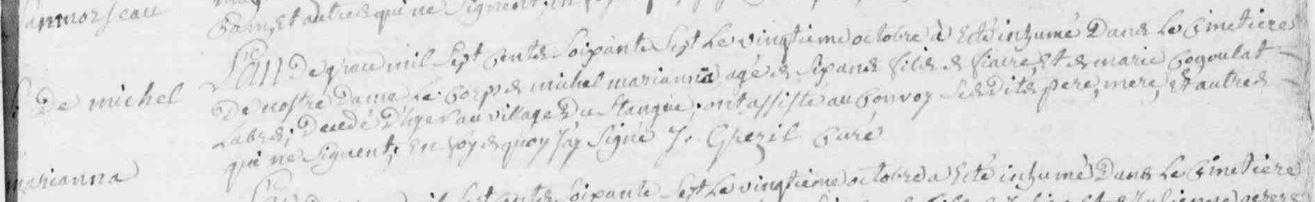 anmorseau
et autres qui ne signent, en
L'an De grace mil sept cents soixante sept Le vingtieme octobre à Esté inhumé Dans Le Cimetiere
De nostre Dame Le Corps de michel marianna agé de six ans fils de fiacre et de marie Cogoulat
De michel
Labbé, Decedé D'yer au village Du Stangue, ont assisté au Convoy Lesdits pere, mere, et autres
qui ne Signent, En foy de quoy J'ay Signé J. Grezil Curé
marianna
L'an De mil sept cents soixante sept Le vingtieme octobre a Esté inhumé Dans Le Cimetiere